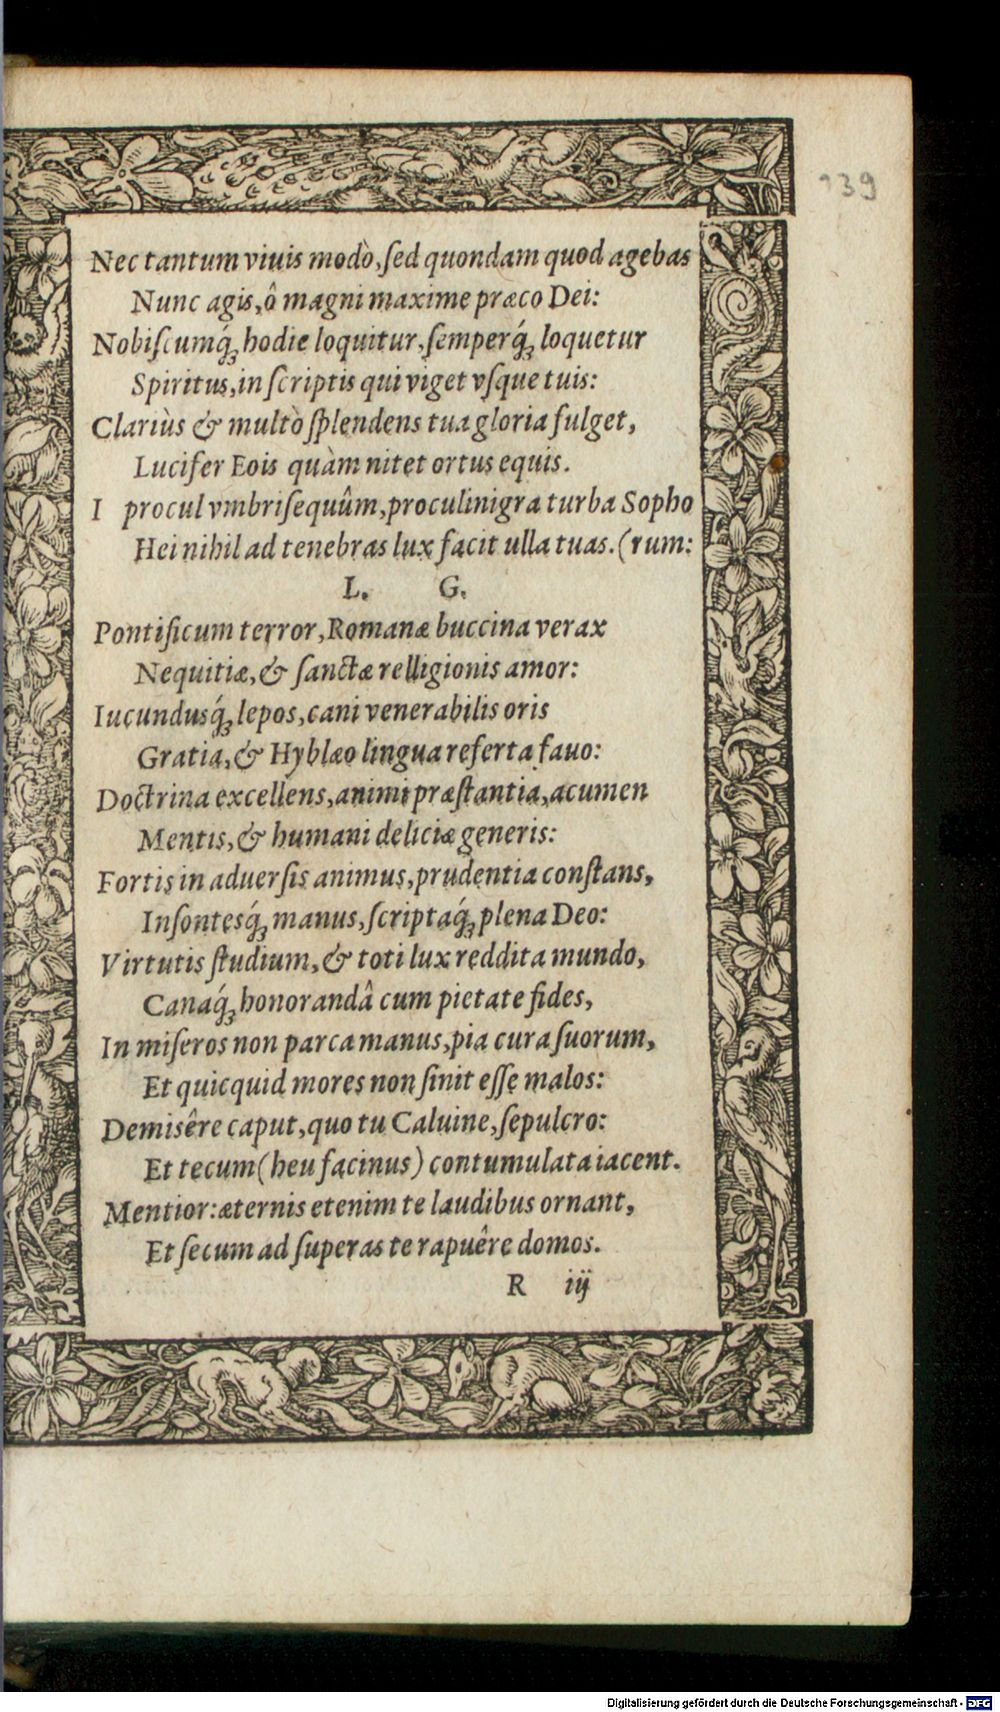 139
Nec tantum viuis modò, ſed quondam quod agebas
Nunc agis, ô magni maxime præco Dei:
Nobiſcumq́ꝫ hodie loquitur, ſemperq́ꝫ loquetur
Spiritus, in ſcriptis qui viget vſque tuis:
Clariùs & multò ſplendens tua gloria fulget,
Lucifer Eois quàm nitet ortus equis.
I procul vmbriſequûm, procul inigra turba Sopho
Hei nihil ad tenebras lux facit ulla tuas. (rum:
L. G.
Pontificum terror, Romanæ buccina verax
Nequitiæ, & ſanctæ relligionis amor:
Iucundusq́ꝫ lepos, cani venerabilis oris
Gratia, & Hyblæo lingua referta fauo:
Doctrina excellens, animi præſtantia, acumen
Mentis, & humani deliciæ generis:
Fortis in aduerſis animus, prudentia conſtans,
Inſontesq́ꝫ manus, ſcriptaq́ꝫ plena Deo:
Virtutis ſtudium, & toti lux reddita mundo,
Canaq́ꝫ honorandâ cum pietate fides,
In miſeros non parca manus, pia cura ſuorum,
Et quicquid mores non ſinit eſſe malos:
Demisêre caput, quo tu Caluine, ſepulcro:
Et tecum (heu facinus) contumulata iacent.
Mentior: æternis etenim te laudibus ornant,
Et ſecum ad ſuperas te rapuêre domos.
R iij
Digitalisierung gefördert durch die Deutsche Forschungsgemeinschaft - DFG